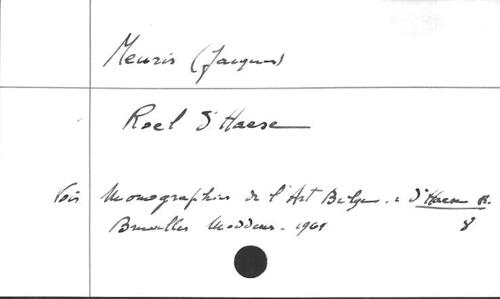 Meuris (Jacques)
Roel D'Haese
Voir Monographies de l'Art Belge. : D'Haese R.
Bruxelles Meddens - 1961
8